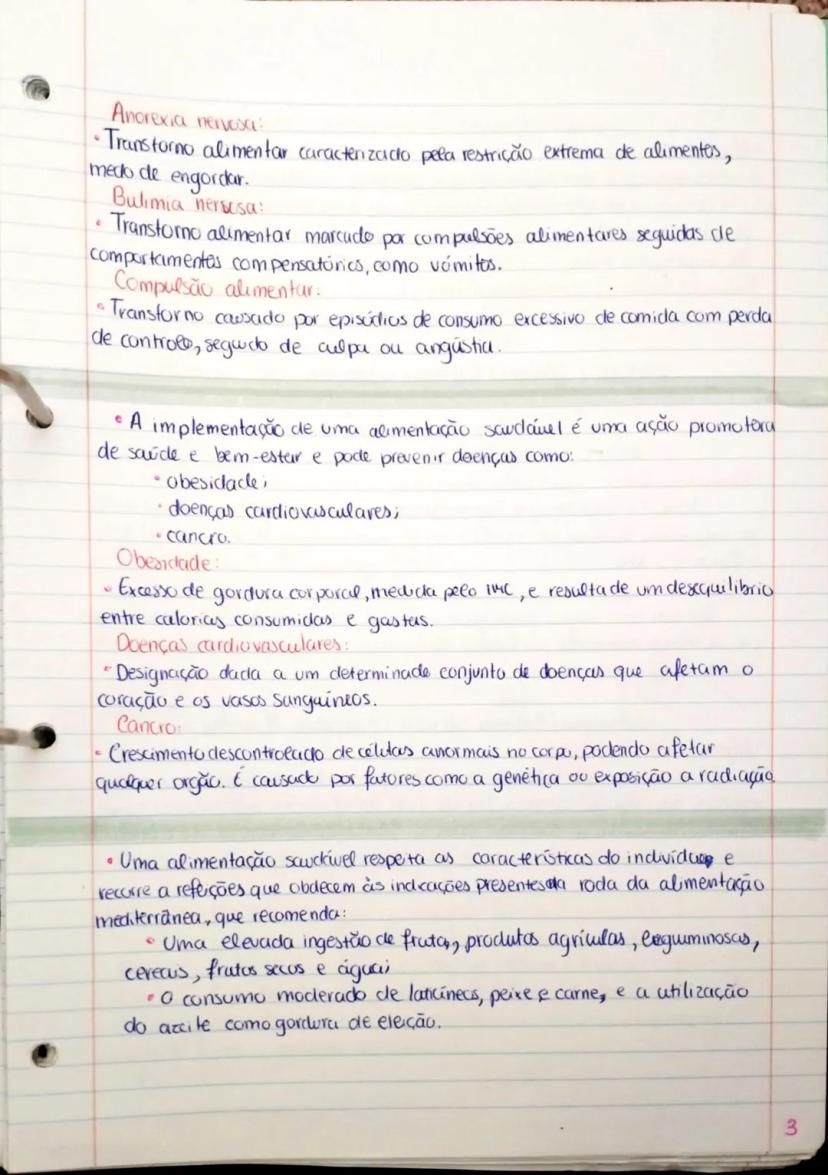 Anorexia nervosa:
• Transtorno alimentar caracterizado pela restrição extrema de alimentos,
medo de engordar.
Bulimia nervosa:
• Transtorno alimentar marcado por compulsões alimentares seguidas de
comportamentos compensatórios, como vómitos.
Compulsão alimentar:
• Transtorno causado por episódios de consumo excessivo de comida com perda
de controlo, seguido de culpa ou angústia.
• A implementação de uma alimentação saudável é uma ação promotora
de saúde e bem-estar e pode prevenir doenças como:
• obesidade;
• doenças cardiovasculares;
• cancro.
Obesidade:
• Excesso de gordura corporal, medida pelo IMC, e resulta de um desequilibrio
entre calorias consumidas e gastas.
Doenças cardiovasculares:
• Designação dada a um determinado conjunto de doenças que afetam o
coração e os vasos sanguíneos.
Cancro:
• Crescimento descontrolado de células anormais no corpo, podendo afetar
qualquer orgão. É causado por fatores como a genética ou exposição a radiação.
• Uma alimentação saudável respeita as características do indivíduo e
recorre a refeições que obdecem às indicações presentes na roda da alimentação
mediterrânea, que recomenda:
• Uma elevada ingestão de fruta, produtos agrículas, leguminosas,
cereais, frutos secos e água;
• O consumo moderado de laticíneos, peixe e carne, e a utilização
do azeite como gordura de eleição.
3